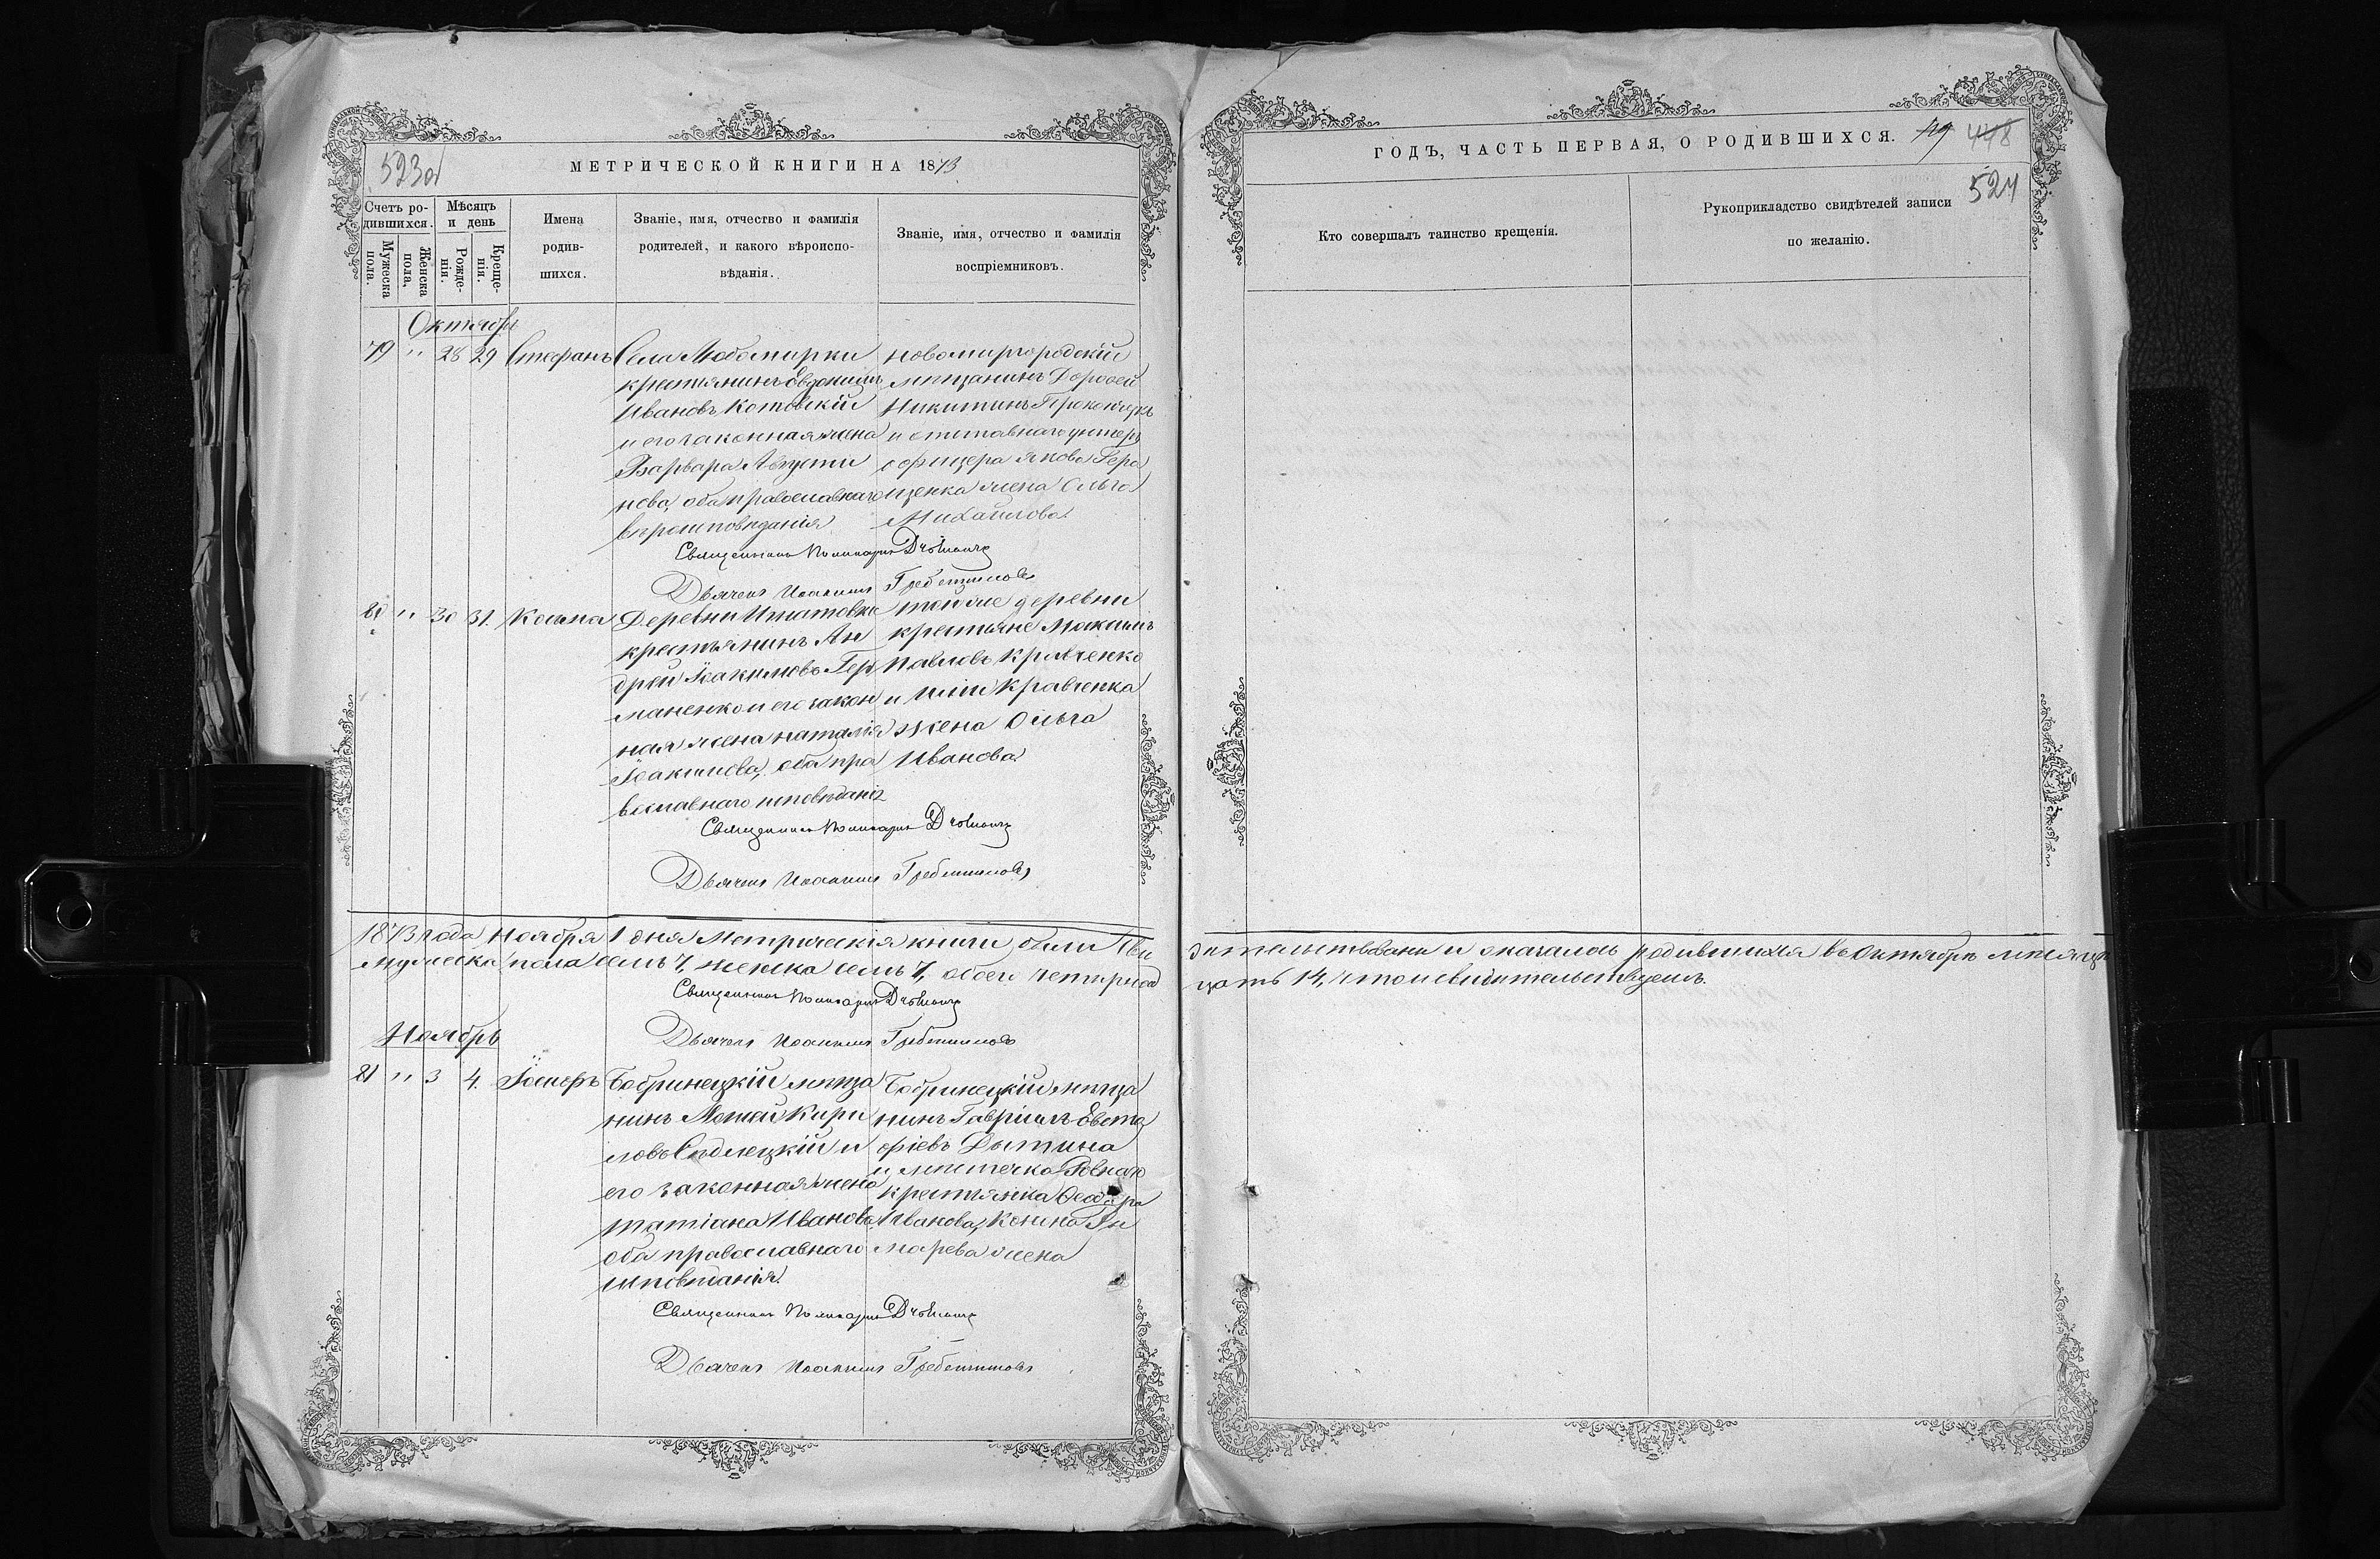 523об
МЕТРИЧЕСКОЙ КНИГИ НА 1873
Счетъ ро-
дившихся.
Мужеска
пола.
Женска
пола.
Мѣсяцъ
и день
Рожде-
нія.
Креще-
нія.
Имена
родив-
шихся.
Званіе, имя, отчество и фамилія
родителей, и какого вѣроиспо-
вѣданія.
Званіе, имя, отчество и фамилія
воспріемниковъ.
Октябрь
79 " 28 29 Стефанъ
Села Любомирки
крестьянинъ Евдокимъ
Ивановъ Котовскій
и его законная жена
Варвара Августи
нова, оба православнаго
вѣроисповѣданія
Новомиргородскій
мѣщанинъ Дороѳей
Никитинъ Прокопчукъ
и отставнаго унтеръ
офицера Якова Гера
щенка жена Ольга
Михайлова
Священникъ Поликарпъ
Дьячекъ Иоакимъ Гребенниковъ
80 " 30 31. Косма
Деревни Игнатовки
крестьянинъ Ан
дрей Іоакимовъ Гер
маненко и его закон
ная жена Наталія
Іоакимова, оба пра
вославнаго исповѣданія
той же деревни
крестьяне Максимъ
Павловъ Кравченко
и Кравченка
жена Ольга
Иванова
Священникъ Поликарпъ
Дьячекъ Иоакимъ Гребенниковъ
1873 года Ноября 1 дня Метрическія книги были сви
дѣтельствованы и оказалось родившихся въ Октябрѣ мѣсяцѣ
мужеска пола семь 7, женска семь 7, обоего четырнад
цать 14, что и свидѣтельствуемъ.
Священникъ Поликарпъ
Дьячекъ Иоакимъ Гребенниковъ
Ноябрь
81 " 3 4. Іосифъ
Бобринецкій мѣща
нинъ Мойсей Кири
ловъ Сядлецкій и
его законная жена
Татіана Иванова
оба православнаго
исповѣданія
Бобринецкій мѣща
нинъ Гавріилъ Евста
фіевъ Дытина
и мѣстечка Ровнаго
крестьянка Ѳеодора
Иванова,
марева жена
Священникъ Поликарпъ
Дьячекъ Иоакимъ Гребенниковъ
ГОДЪ, ЧАСТЬ ПЕРВАЯ, О РОДИВШИХСЯ.
448
524
Кто совершалъ таинство крещенія.
Рукоприкладство свидѣтелей записи
по желанію.